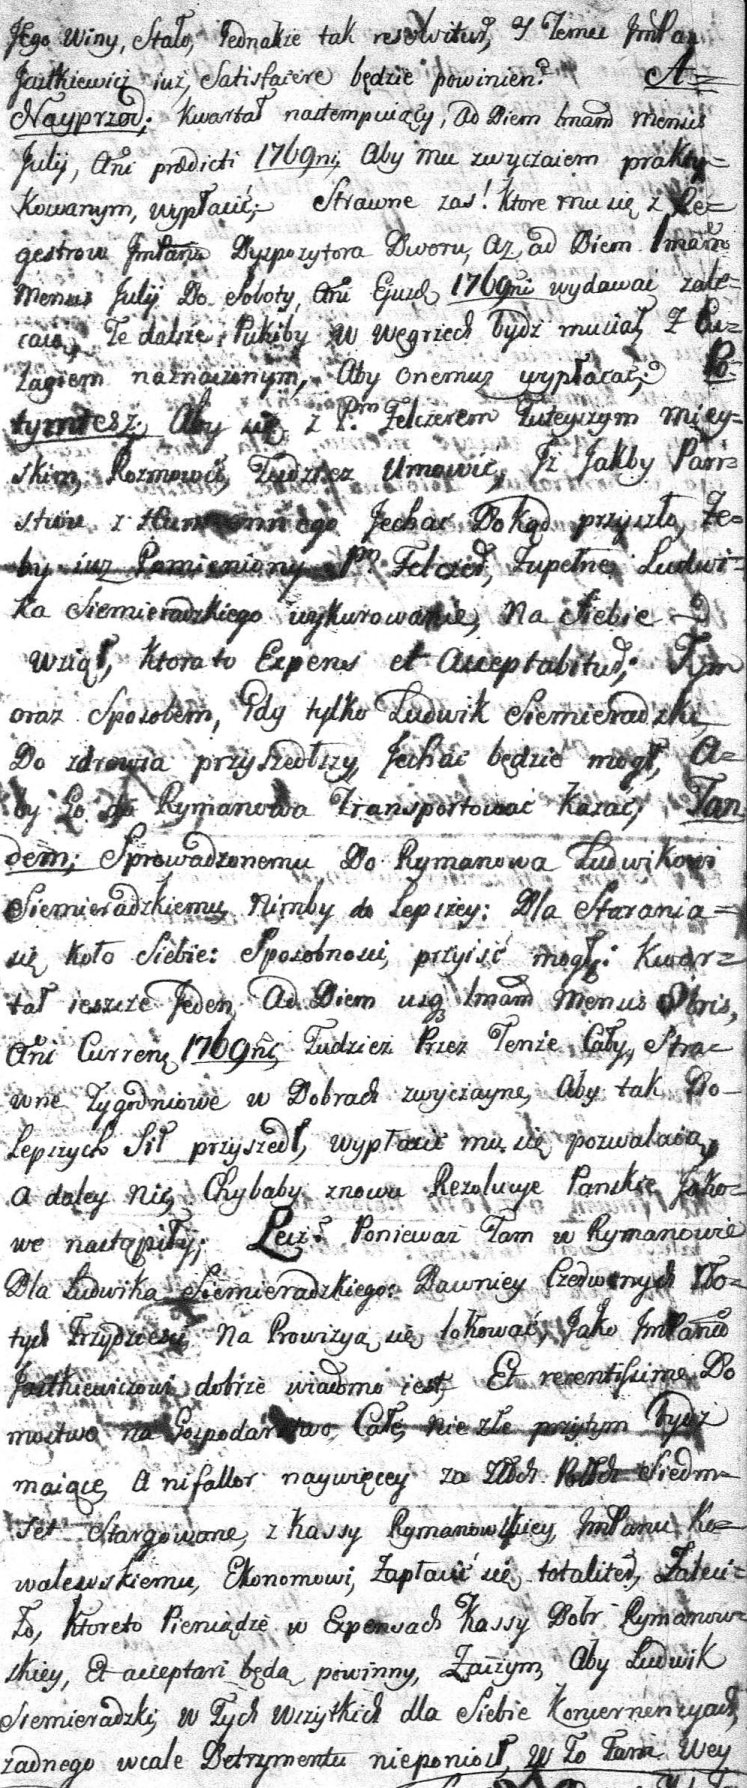 Jego winy, Stało, Jednakże tak reselwitur, Y Temu JmPan
Jastkiewici iuż, Satisfacere będzie powinien. A=
Nayprzod; Kwartał nastempuiący, Ad Diem 1mam mensis
Julij, Ani prædicti 1769ni, Aby mu zwyczaiem prakty=
kowanym, wypłacić; Strawne zas! Ktore mu się z Re=
gestrow JmPana Dyspozytora Dworu, Aż, ad Diem 1mam
Mensis Julij Do Soboty, Ani Ejusd 1769ni wydawac zale=
caią, Te dalsze, Pukiby w Węgrzech bydź musiał, Z
łagiem naznaczonym, Aby onemuz wypłacać; Po=
tymtesz; Aby się z Pm Felczerem Tuteyszym miey=
skim, Rozmowić, Tudziesz Umowić, Jż Jakby Pań=
stwu z Jechać Dokąd przyszło, Że=
by iuz Pomieniony Pn Felczer, Zupełne Ludwi=
ka Siemieradzkiego wykurowanie, Na Siebie
wziął, ktora to Expens et Acceptabitur; Tym
oraz Sposobem, Gdy tylko Ludwik Siemieradzki,
Do zdrowia przyszedłszy, Jechać będzie mogł, A=
by Go do Rymanowa Transportować kazać, Tan
dem; Sprowadzonemu Do Rymanowa Ludwikowi
Siemieradzkiemu, Nimby do Lepszey: Dla Starania=
się koło Siebie: Sposobnosci, przyiść mogł: Kwar=
tał ieszcze Jeden, Ad Diem usq 1mam Mensis Obris,
Ani Curren 1769ni, Tudziez Przez Tenże Cały, Stra=
wne Tygodniowe w Dobrach zwyczayne, Aby tak Do=
Lepszych Sił przyszedł, wypłacić mu się pozwalaią,
A daley nic, Chybaby znowu Rezolucye Panskie Jako=
we nastąpiły; Lecz: Ponieważ Tam w Rymanowie
Dla Ludwika Siemieradzkiego: Dawniey Czerwonych Zło=
tych Trzydzieści, Na Prowizyą się lokować, Jako JmPanu
Jastkiewiczowi dobrze wiadomo iest, Et recentissime Do
mostwo na Gospodarstwo, Całe, nie złe przytym bydź
maiące, A ni fallor naywięcey za Złch Polch Siedm=
set Stargowane, z Kassy Rymanowskiey, JmPanu Ko=
walewskiemu, Ekonomowi, Zapłacić się totaliter, Zaleci=
ło, ktoreto Pieniądze w Expensach Kassy Dobr Rymanow=
skiey, Et acceptari będą powinny, Zaczym, Aby Ludwik
Siemieradzki, w Tych wszytkich dla Siebie Koncernencyach,
żadnego wcale Detrymentu nieponiosł, W To Tam Wey